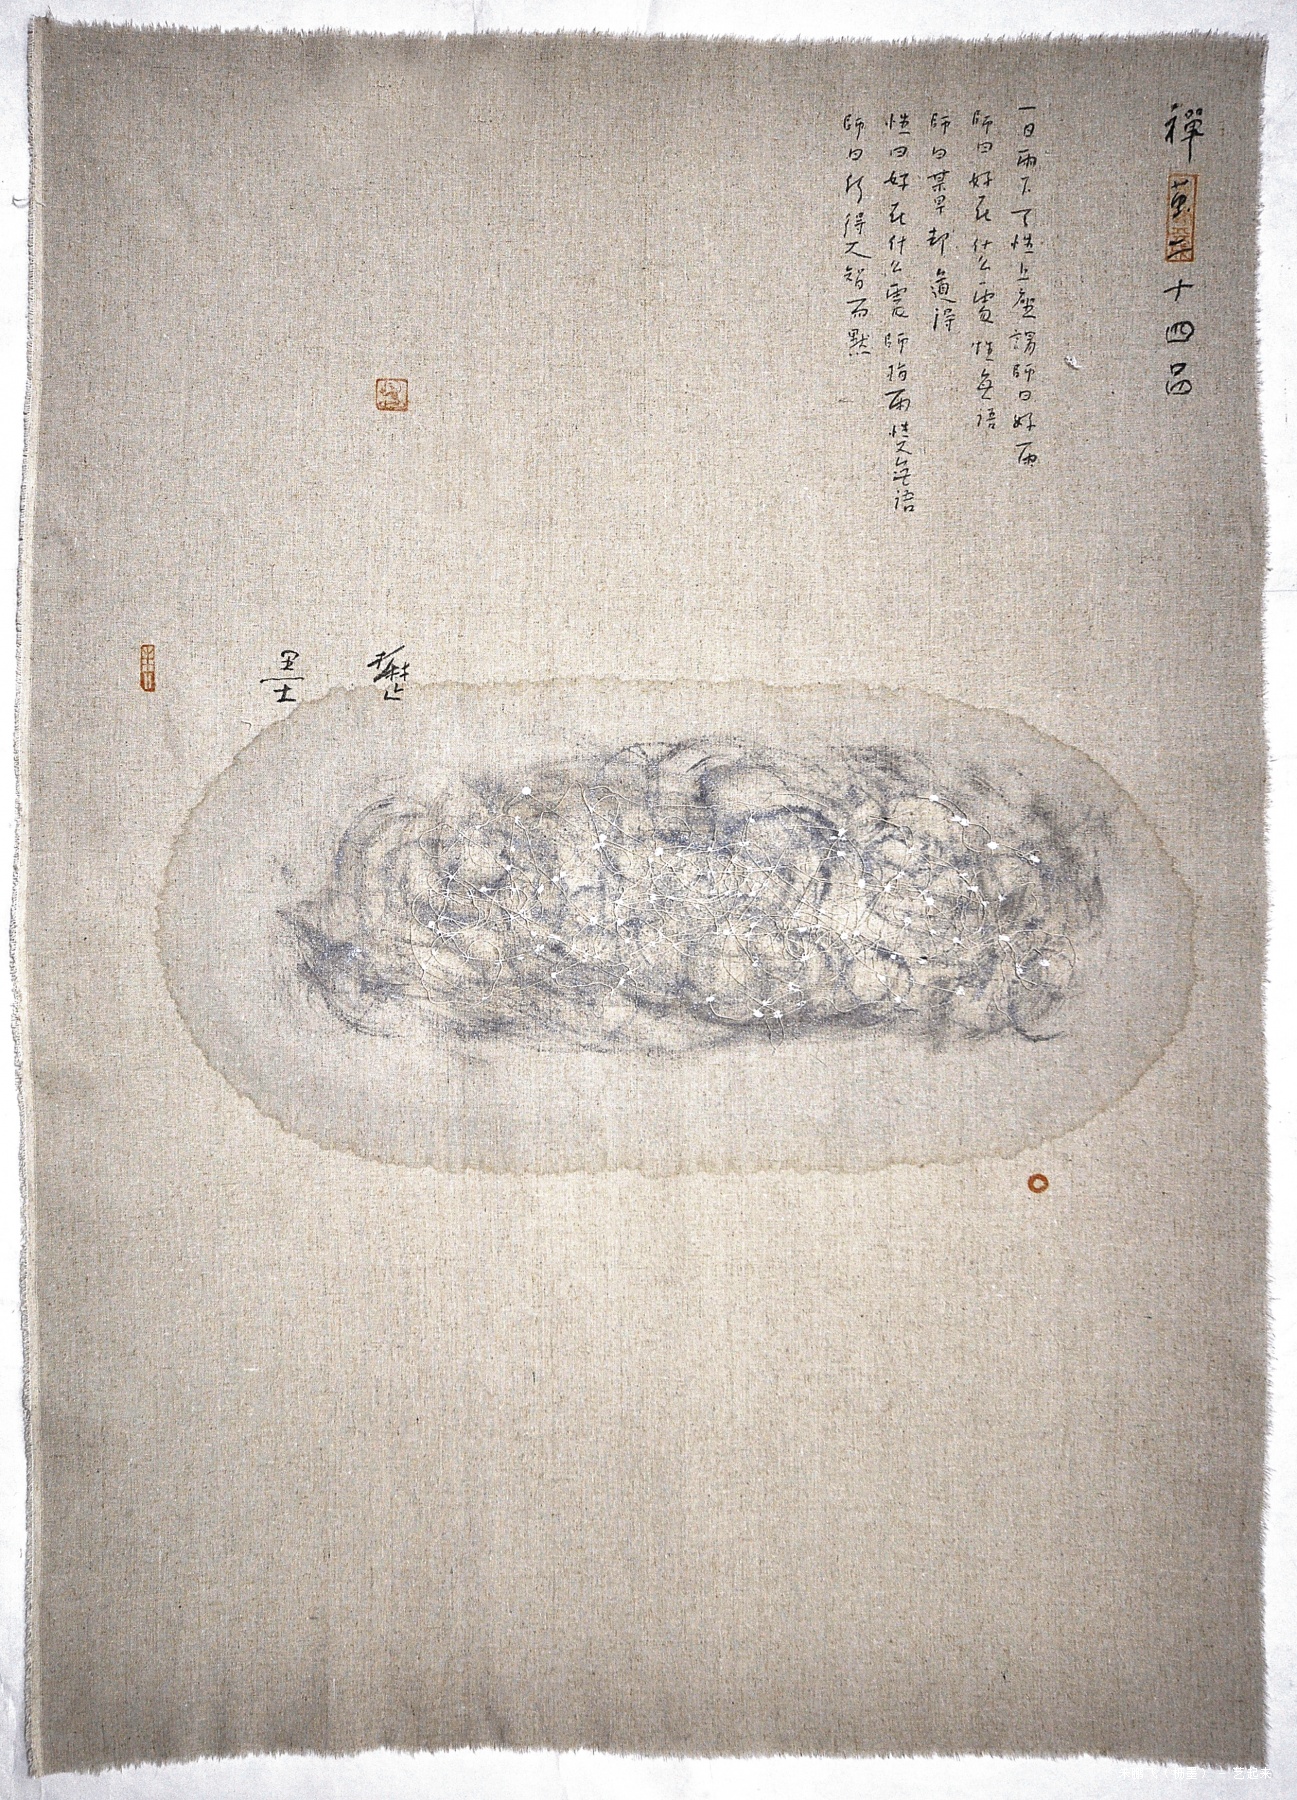 禪茧二十四品
一日雨下了性上座謂師曰好雨
師曰好在什么處性無語
師曰某早却道得
性曰好在什么處師指雨性又無語
師曰何得大智而默
楚
墨士